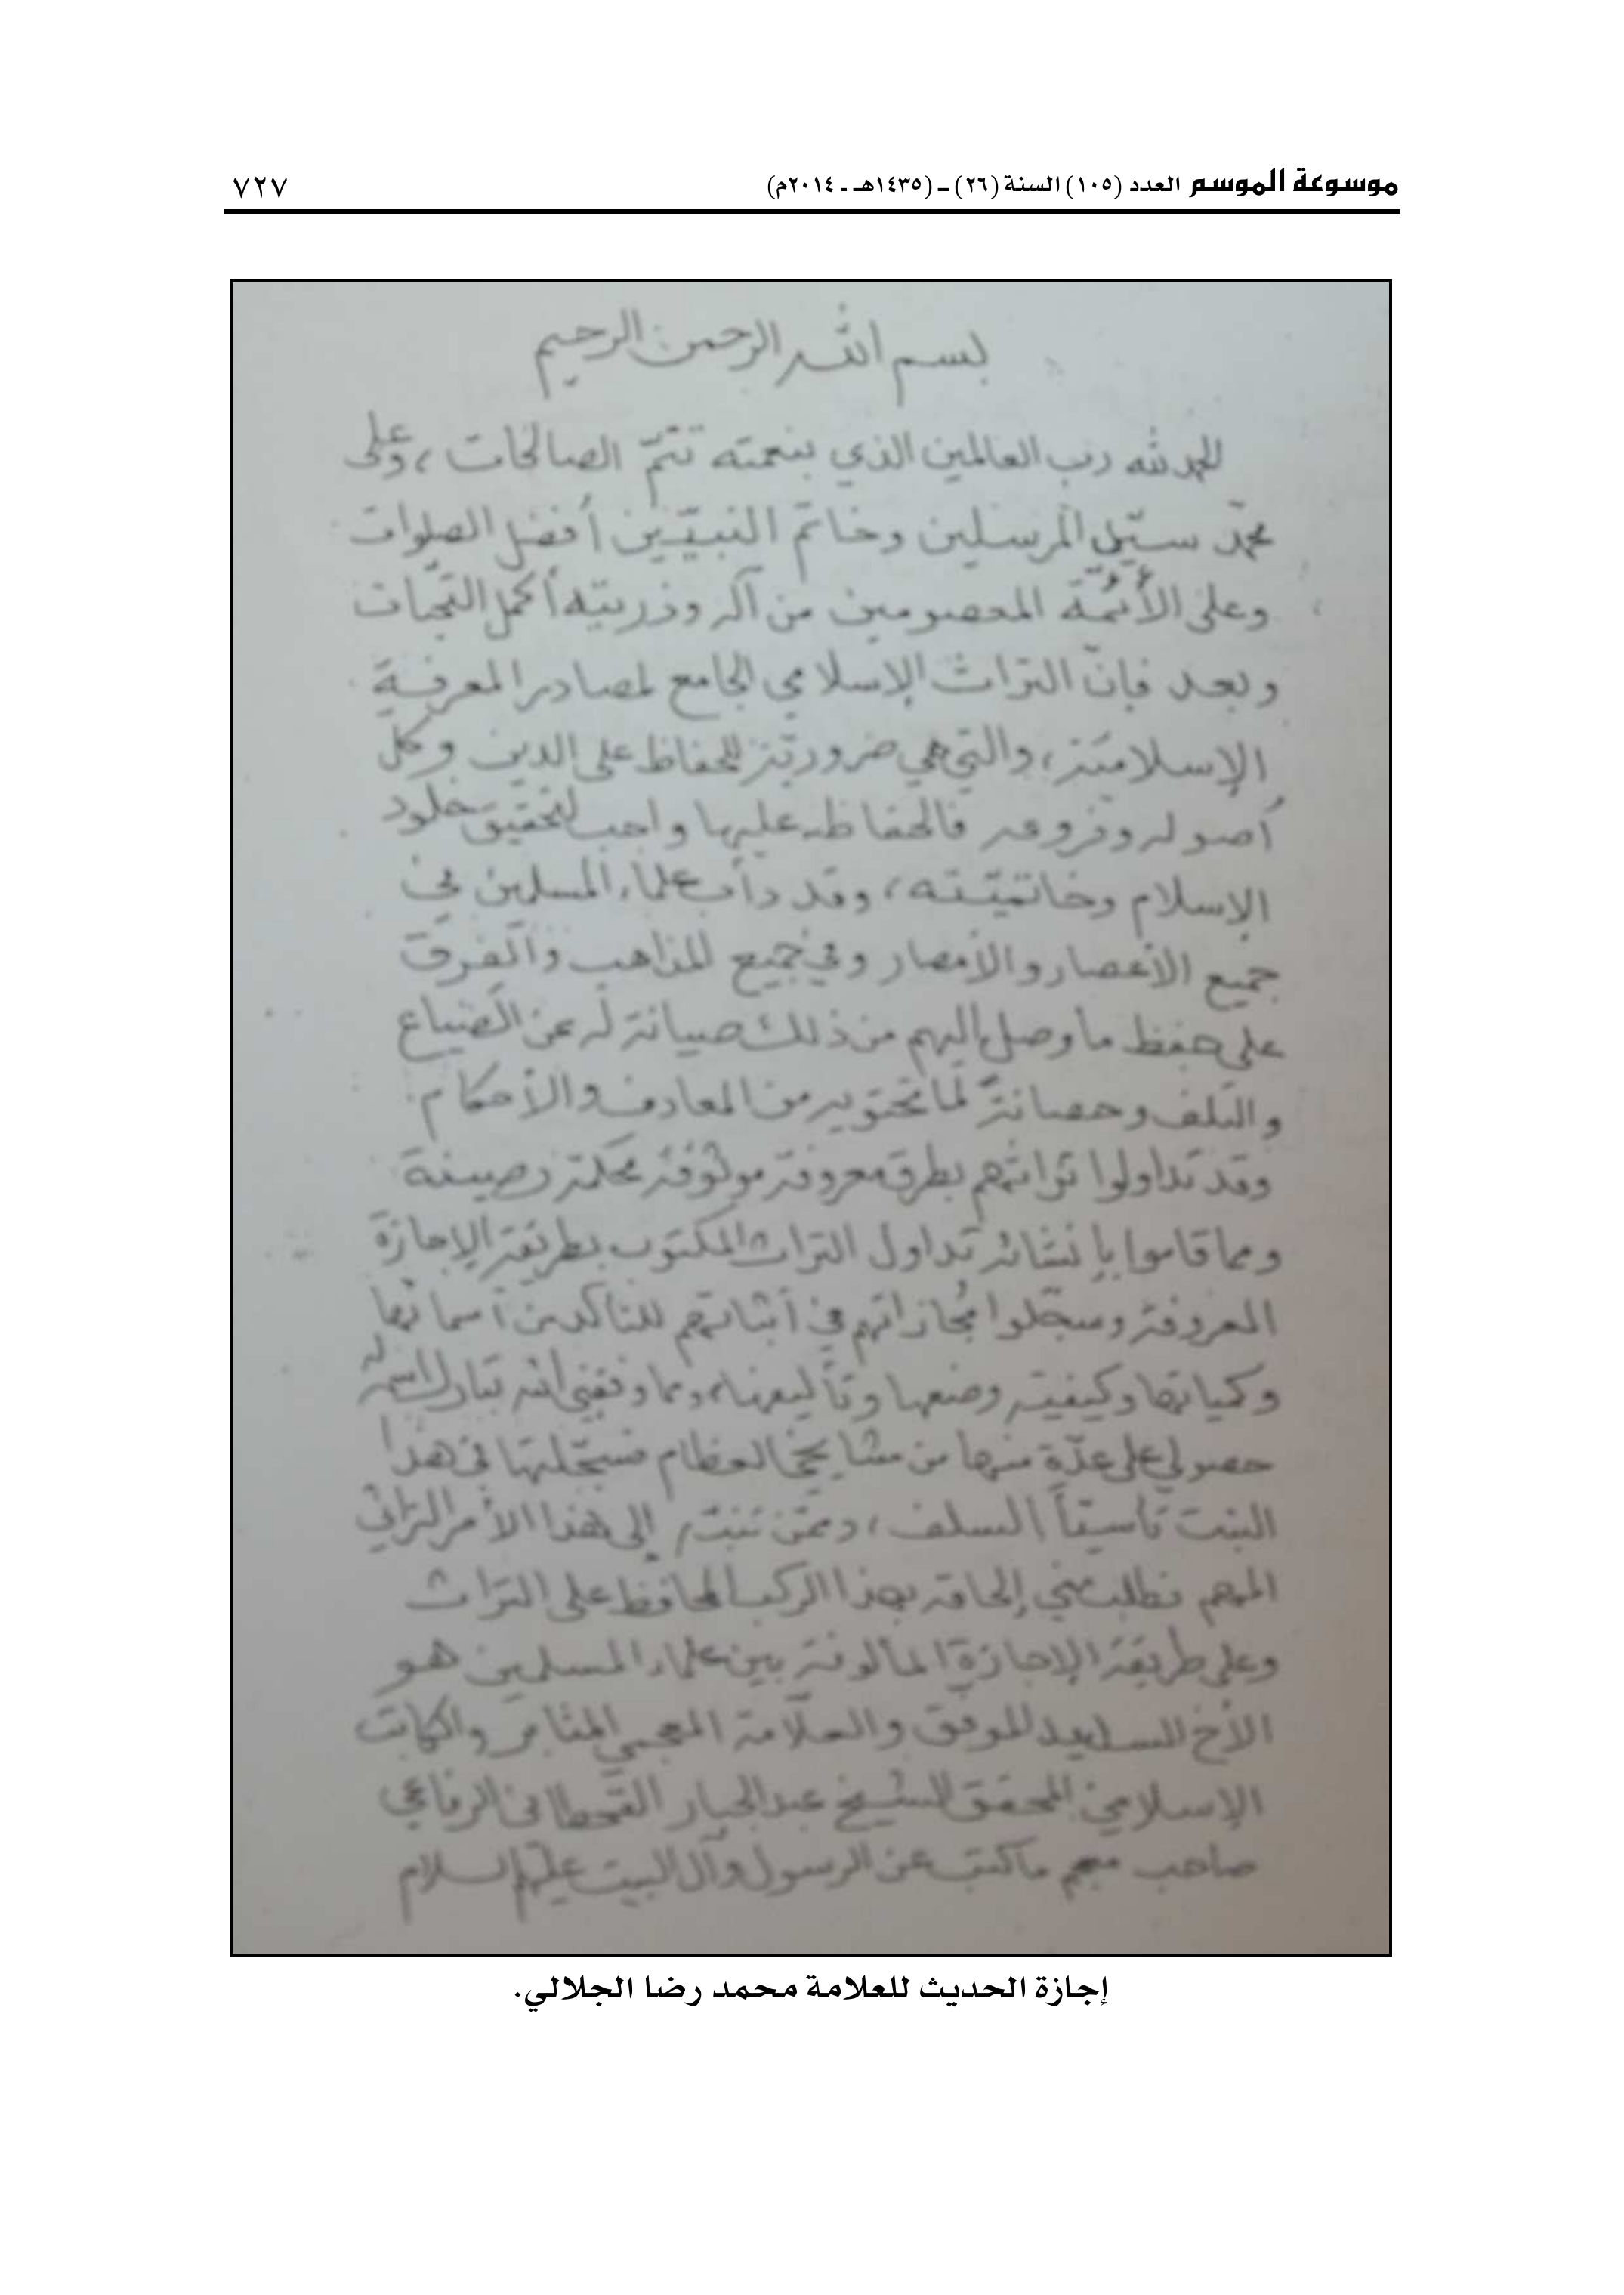 موسوعة الموسم العدد (١٠٥) السنة (٢٦) ـ (١٤٣٥هـ ـ ٢٠١٤م) ٧٢٧
بسم الله الرحمن الرحيم
الحمد لله رب العالمين الذي بنعمته تتمّ الصالحات، وعلى
محمّد سيّد المرسلين وخاتم النبيّين أفضل الصلوات
وعلى الأئمّة المعصومين من آله وذريته أكمل التحيّات
وبعد فإنّ التراث الإسلامي الجامع لمصادر المعرفة
الإسلاميّة، والتي هي ضروريّة للحفاظ على الدين وكل
أُصوله وفروعه فالحفاظ عليها واجب لتحقيق خلود
الإسلام وخاتميّته، وقد دأب علماء المسلمين في
جميع الأعصار والأمصار وفي جميع المذاهب والفرق
على حفظ ما وصل إليهم من ذلك صيانة له عن الضياع
والتلف وحصانةً لما تحتويه من المعارف والأحكام.
وقد تداولوا تراثهم بطرق معروفة موثوقة محكمة رصينة
ومما قاموا بإنشائه تداول التراث المكتوب بطريقة الإجازة
المعروفة وسجّلوا مُجازاتهم في أثباتهم للتأكد من أسمائها
وكمياتها وكيفية وضعها وتأليفها، ومما وفقني الله تبارك اسمه له
حصولي على عدّة منها من مشايخي العظام فسجّلتها في هذا
الثبت تأسيّاً السلف، وممّن تنبّه إلى هذا الأمر التراثي
المهم فطلب مني إلحاقه بهذا الركب المحافظ على التراث
وعلى طريقة الإجازة المألوفة بين علماء المسلمين هو
الأخ السعيد الموفق والعلّامة المعجمي المثابر والكاتب
الإسلامي المحقق الشيخ عبد الجبار القحطاني الرفاعي
صاحب معجم ما كتب عن الرسول وآل البيت عليهم السلام
إجازة الحديث للعلامة محمد رضا الجلالي.